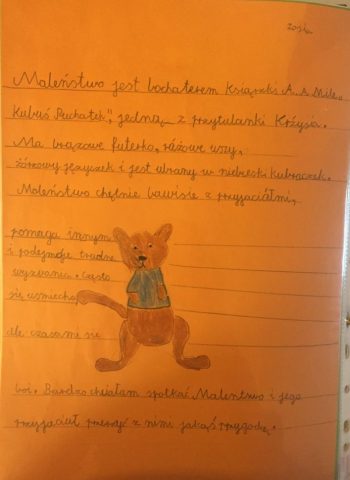 Zosia
Maleństwo jest bochaterem książki A. A. Milne
"Kubuś Puchatek", jedną z przytulanki Krzysia.
Ma brązowe futerko, różowe uszy,
różowy języczek i jest ubrany w niebieski kubraczek.
Maleństwo chętnie bawisie z przyjaciółmi,
pomaga innym
i podejmuje trudne
wyzwania. Często
się uśmiecha,
ale czasami się
boi. Bardzo chciałam spotkać Maleństwo i jego
przyjaciuł przeżyć z nimi jakąś przygodę.